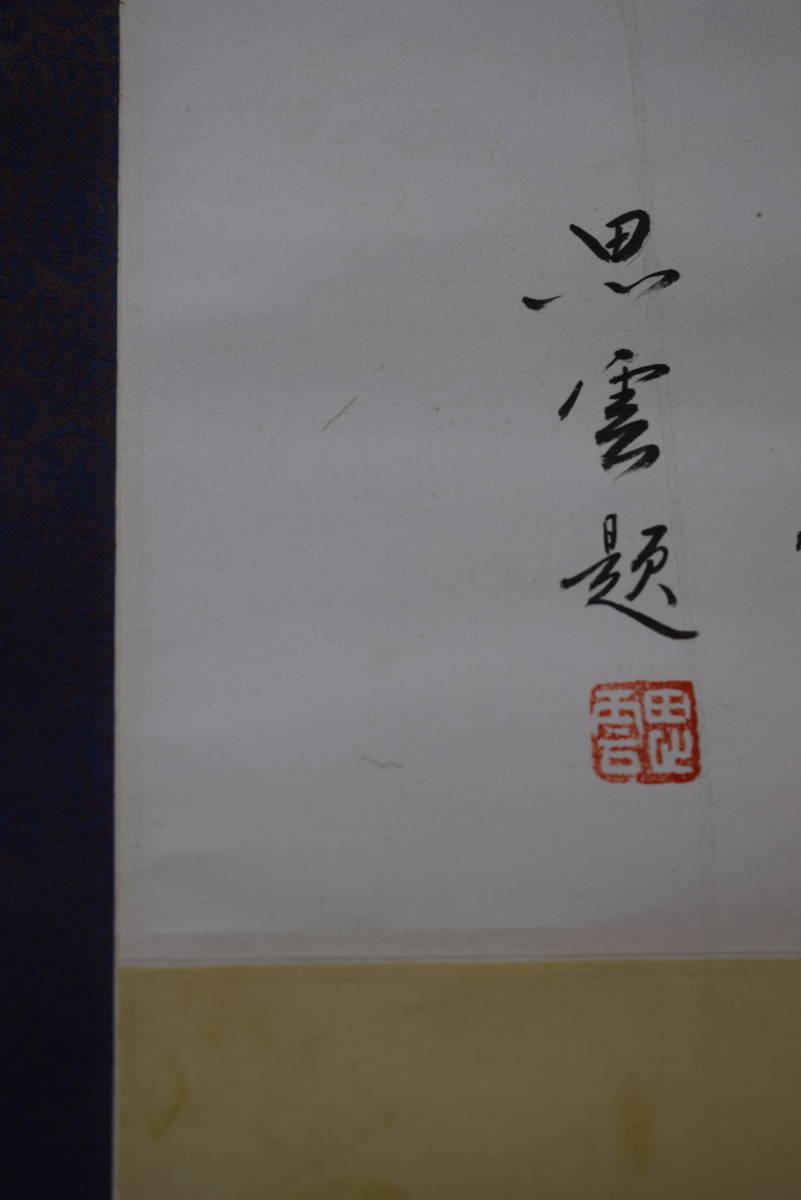 思雲題
思雲